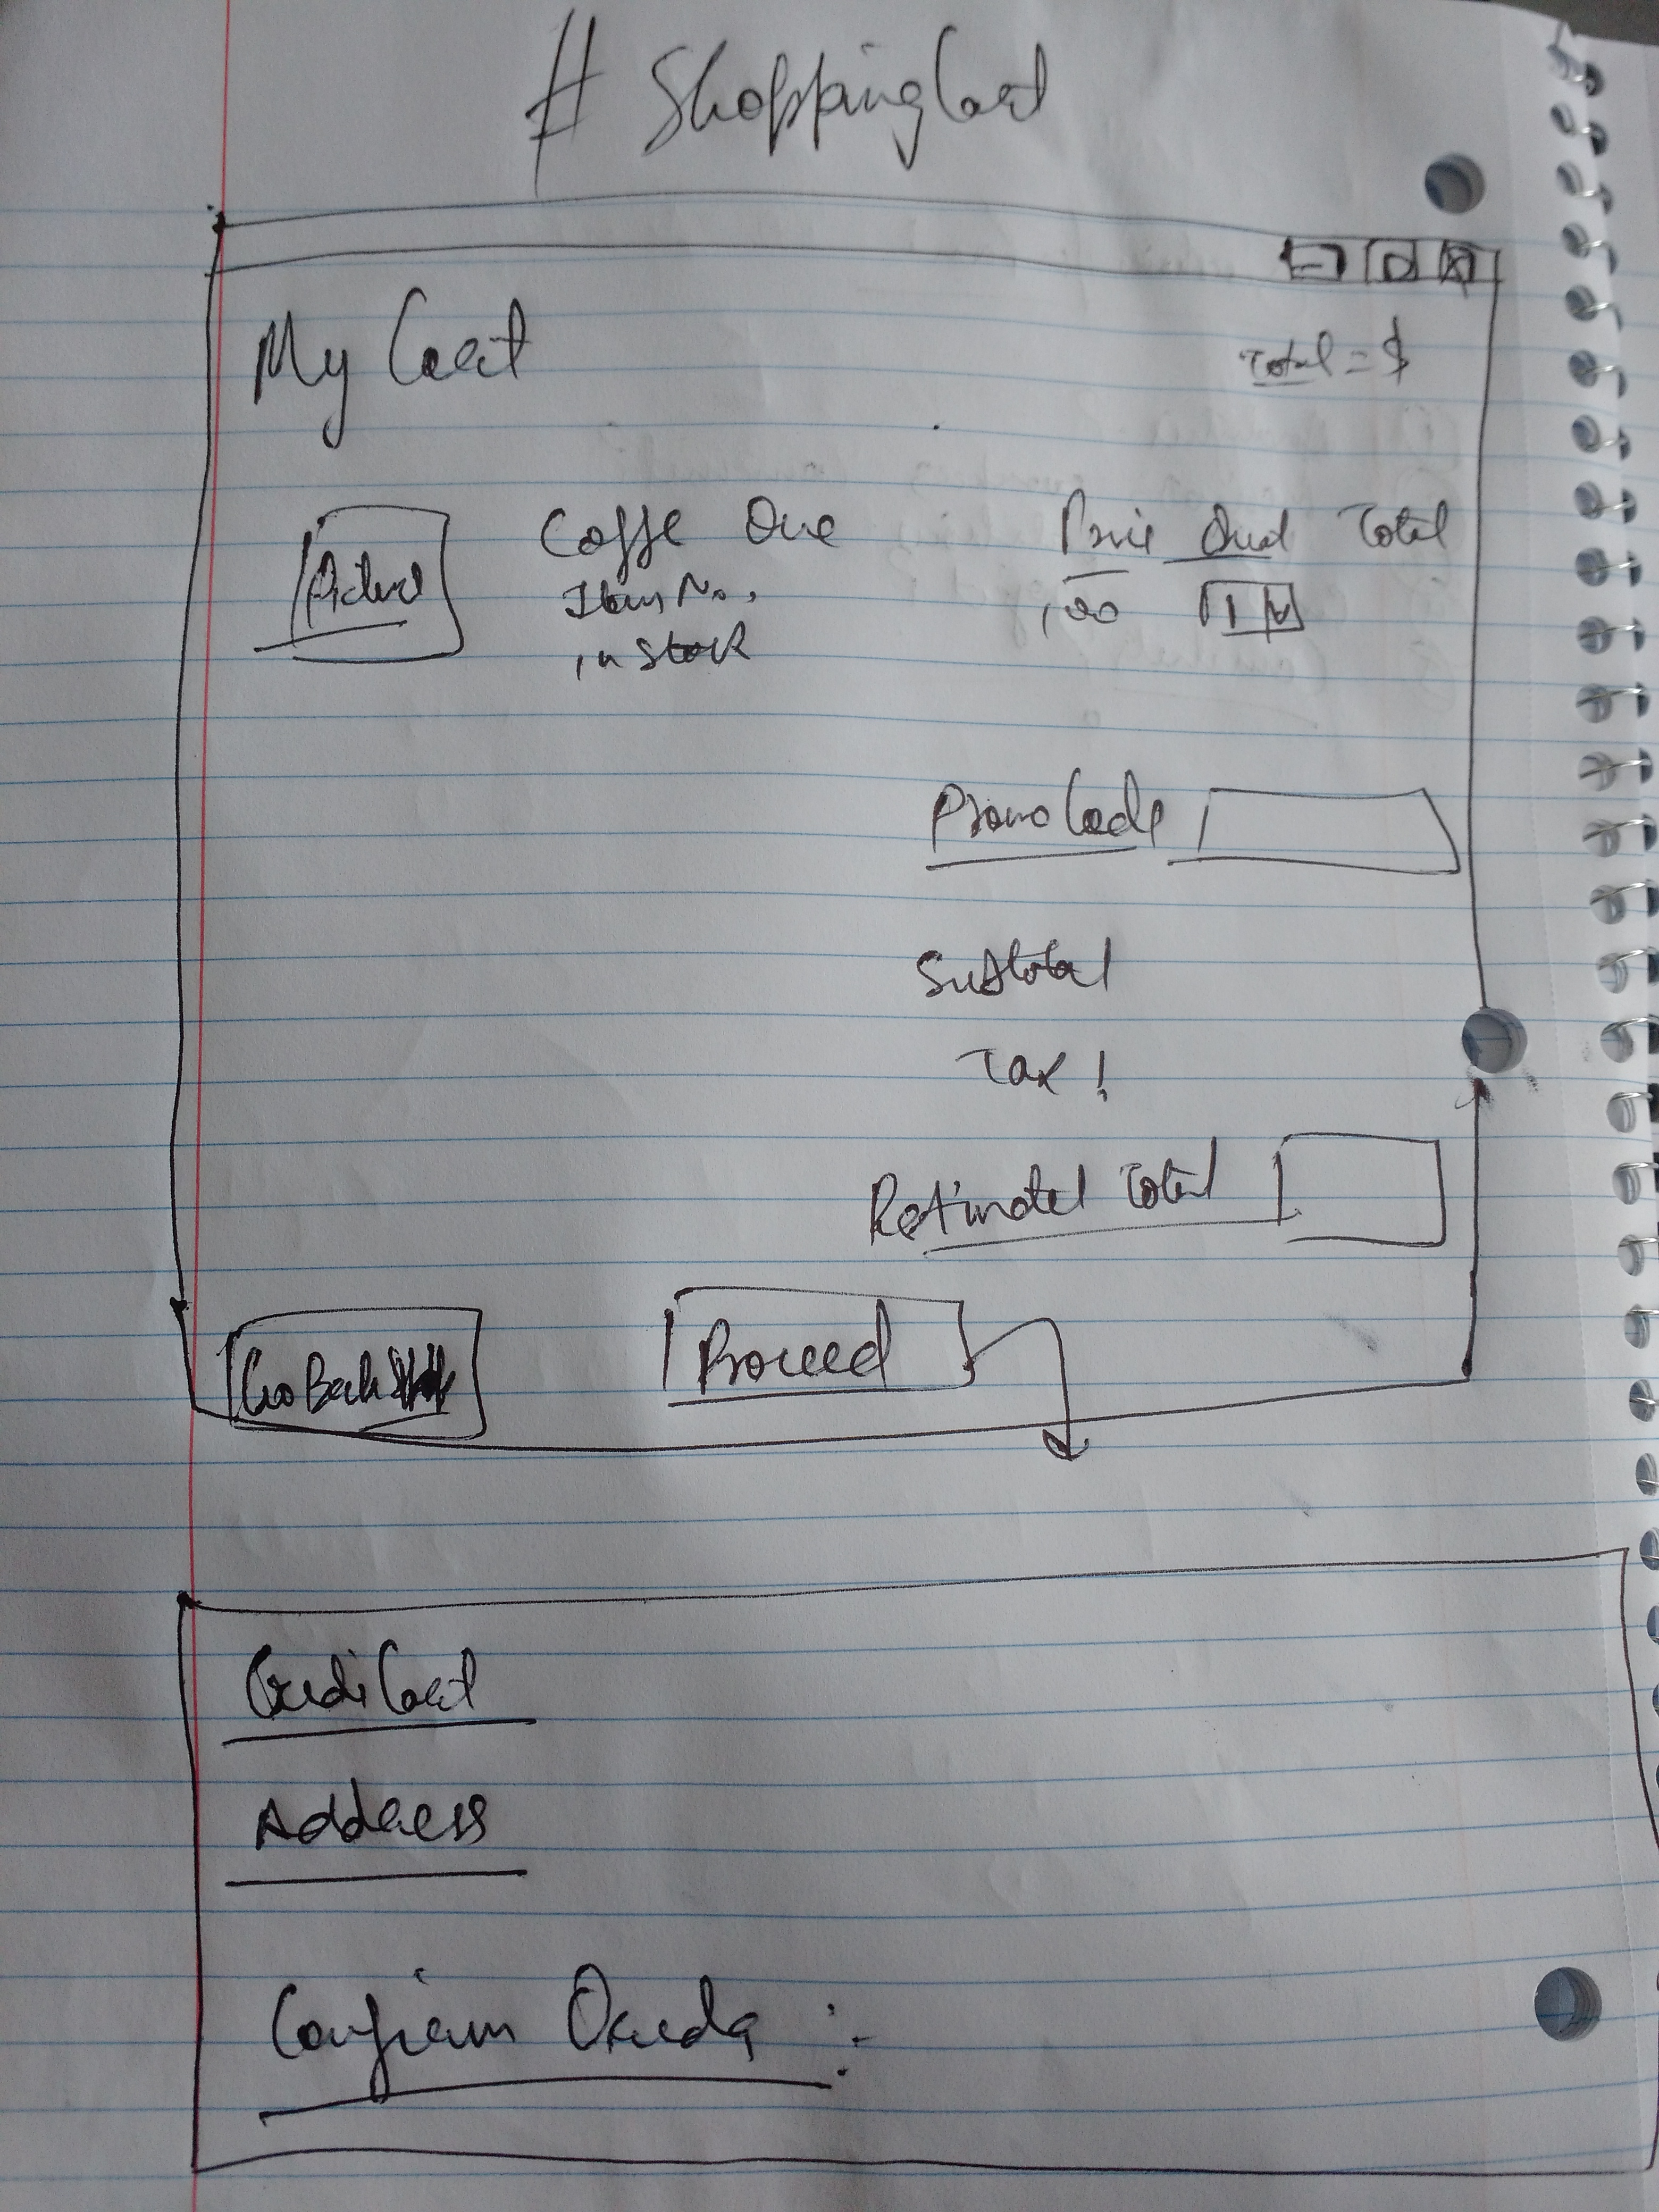 # Shopping Cart
My Cart
Total = $
Picture
Coffe One
Price Quat Total
Item No.
1.00 1
in stock
Promo Code
Subtotal
Tax !
Estimated Total
Go Back
Proceed
Credi Card
Address
Confirm Order :-